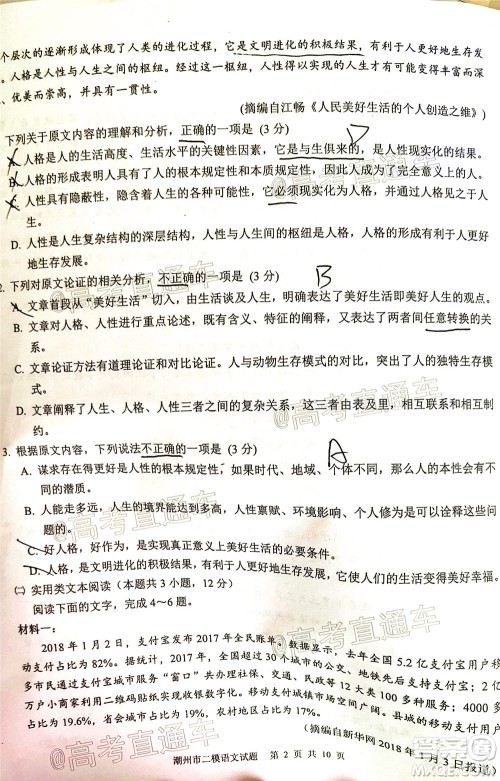 个层次的逐渐形成体现了人类的进化过程，它是文明进化的积极结果，有利于人更好地生存发
。人格是人性与人生之间的枢纽。经过这一枢纽，人性得以实现的人生存在可能变得丰富而深
、优美而崇高，并具有一贯性。
(摘编自江畅《人民美好生活的个人创造之维》)
下列关于原文内容的理解和分析，正确的一项是 (3 分) D
A. 人格是人的生活高度、生活水平的关键性因素，它是与生俱来的，是人性现实化的结果。
B. 人格的形成表明人具有了人的根本规定性和本质规定性，因此人成为了完全意义上的人。
C. 人性具有隐蔽性，隐含着人生的各种可能性，它必须现实化为人格，并通过人格见之于人
生。
D. 人性是人生复杂结构的深层结构，人性内在地包含生存的规定性，是人格、人生更好
地生存发展。
2. 下列对原文论证的相关分析，不正确的一项是 (3 分) B
A. 文章首段从“美好生活”切入，由生活谈及人生，明确表达了美好生活即美好人生的观点。
B. 文章对人格、人性进行重点论述，既有概念、特征的阐释，又表达了两者间任意转换的关
系。
C. 文章论证方法有道理论证和对比论证。人与动物生存模式的对比，突出了人的独特生存模
式。
D. 文章阐释了人生、人格、人性三者之间的复杂关系，这三者由表及里，相互联系、相互制
约。
3. 根据原文内容，下列说法不正确的一项是 (3 分) A
A. 谋求存在得更好是人性的根本规定性，如果时代、地域、个体不同，那么人的本性会有不
同的潜质。
B. 人能走多远，人生的境界能达到多高，人性禀赋、环境影响、个人修为是可以决定这些问
题的。
C. 好人格，好作为，是实现真正意义上美好生活的必要条件。
D. 人格，是文明进化的积极结果，有利于每个人，能使人们的生活变得美好幸福。
㈡ 实用类文本阅读 (本题共 3 小题，12 分)
阅读下面的文字，完成 4～6 题。
材料一：
2018 年 1 月 2 日，支付宝发布 2017 年全民账单。数据显示，去年全国 5.2 亿支付宝用户移
动支付占比为 82%。据统计，通过覆盖超过 30 个城市的公交、地铁先后支持支付宝；2 亿
多市民通过支付宝城市服务“窗口”共办理包括社保、交通、民政等 12 类政务服务；4000 多
万户小商家利用二维码贴纸实现收银数字化。移动支付城镇市场空间广阔。县城的移动支付
占比为 19.6%，省会占比为 20%，农村地区占比为 17%。
(摘编自新华网 2018 年 1 月 3 日报道)
潮州市二模语文试题 第 2 页 共 10 页
@高考直通车
@高考直通车
@高考直通车
@高考直通车
@高考直通车
@高考直通车